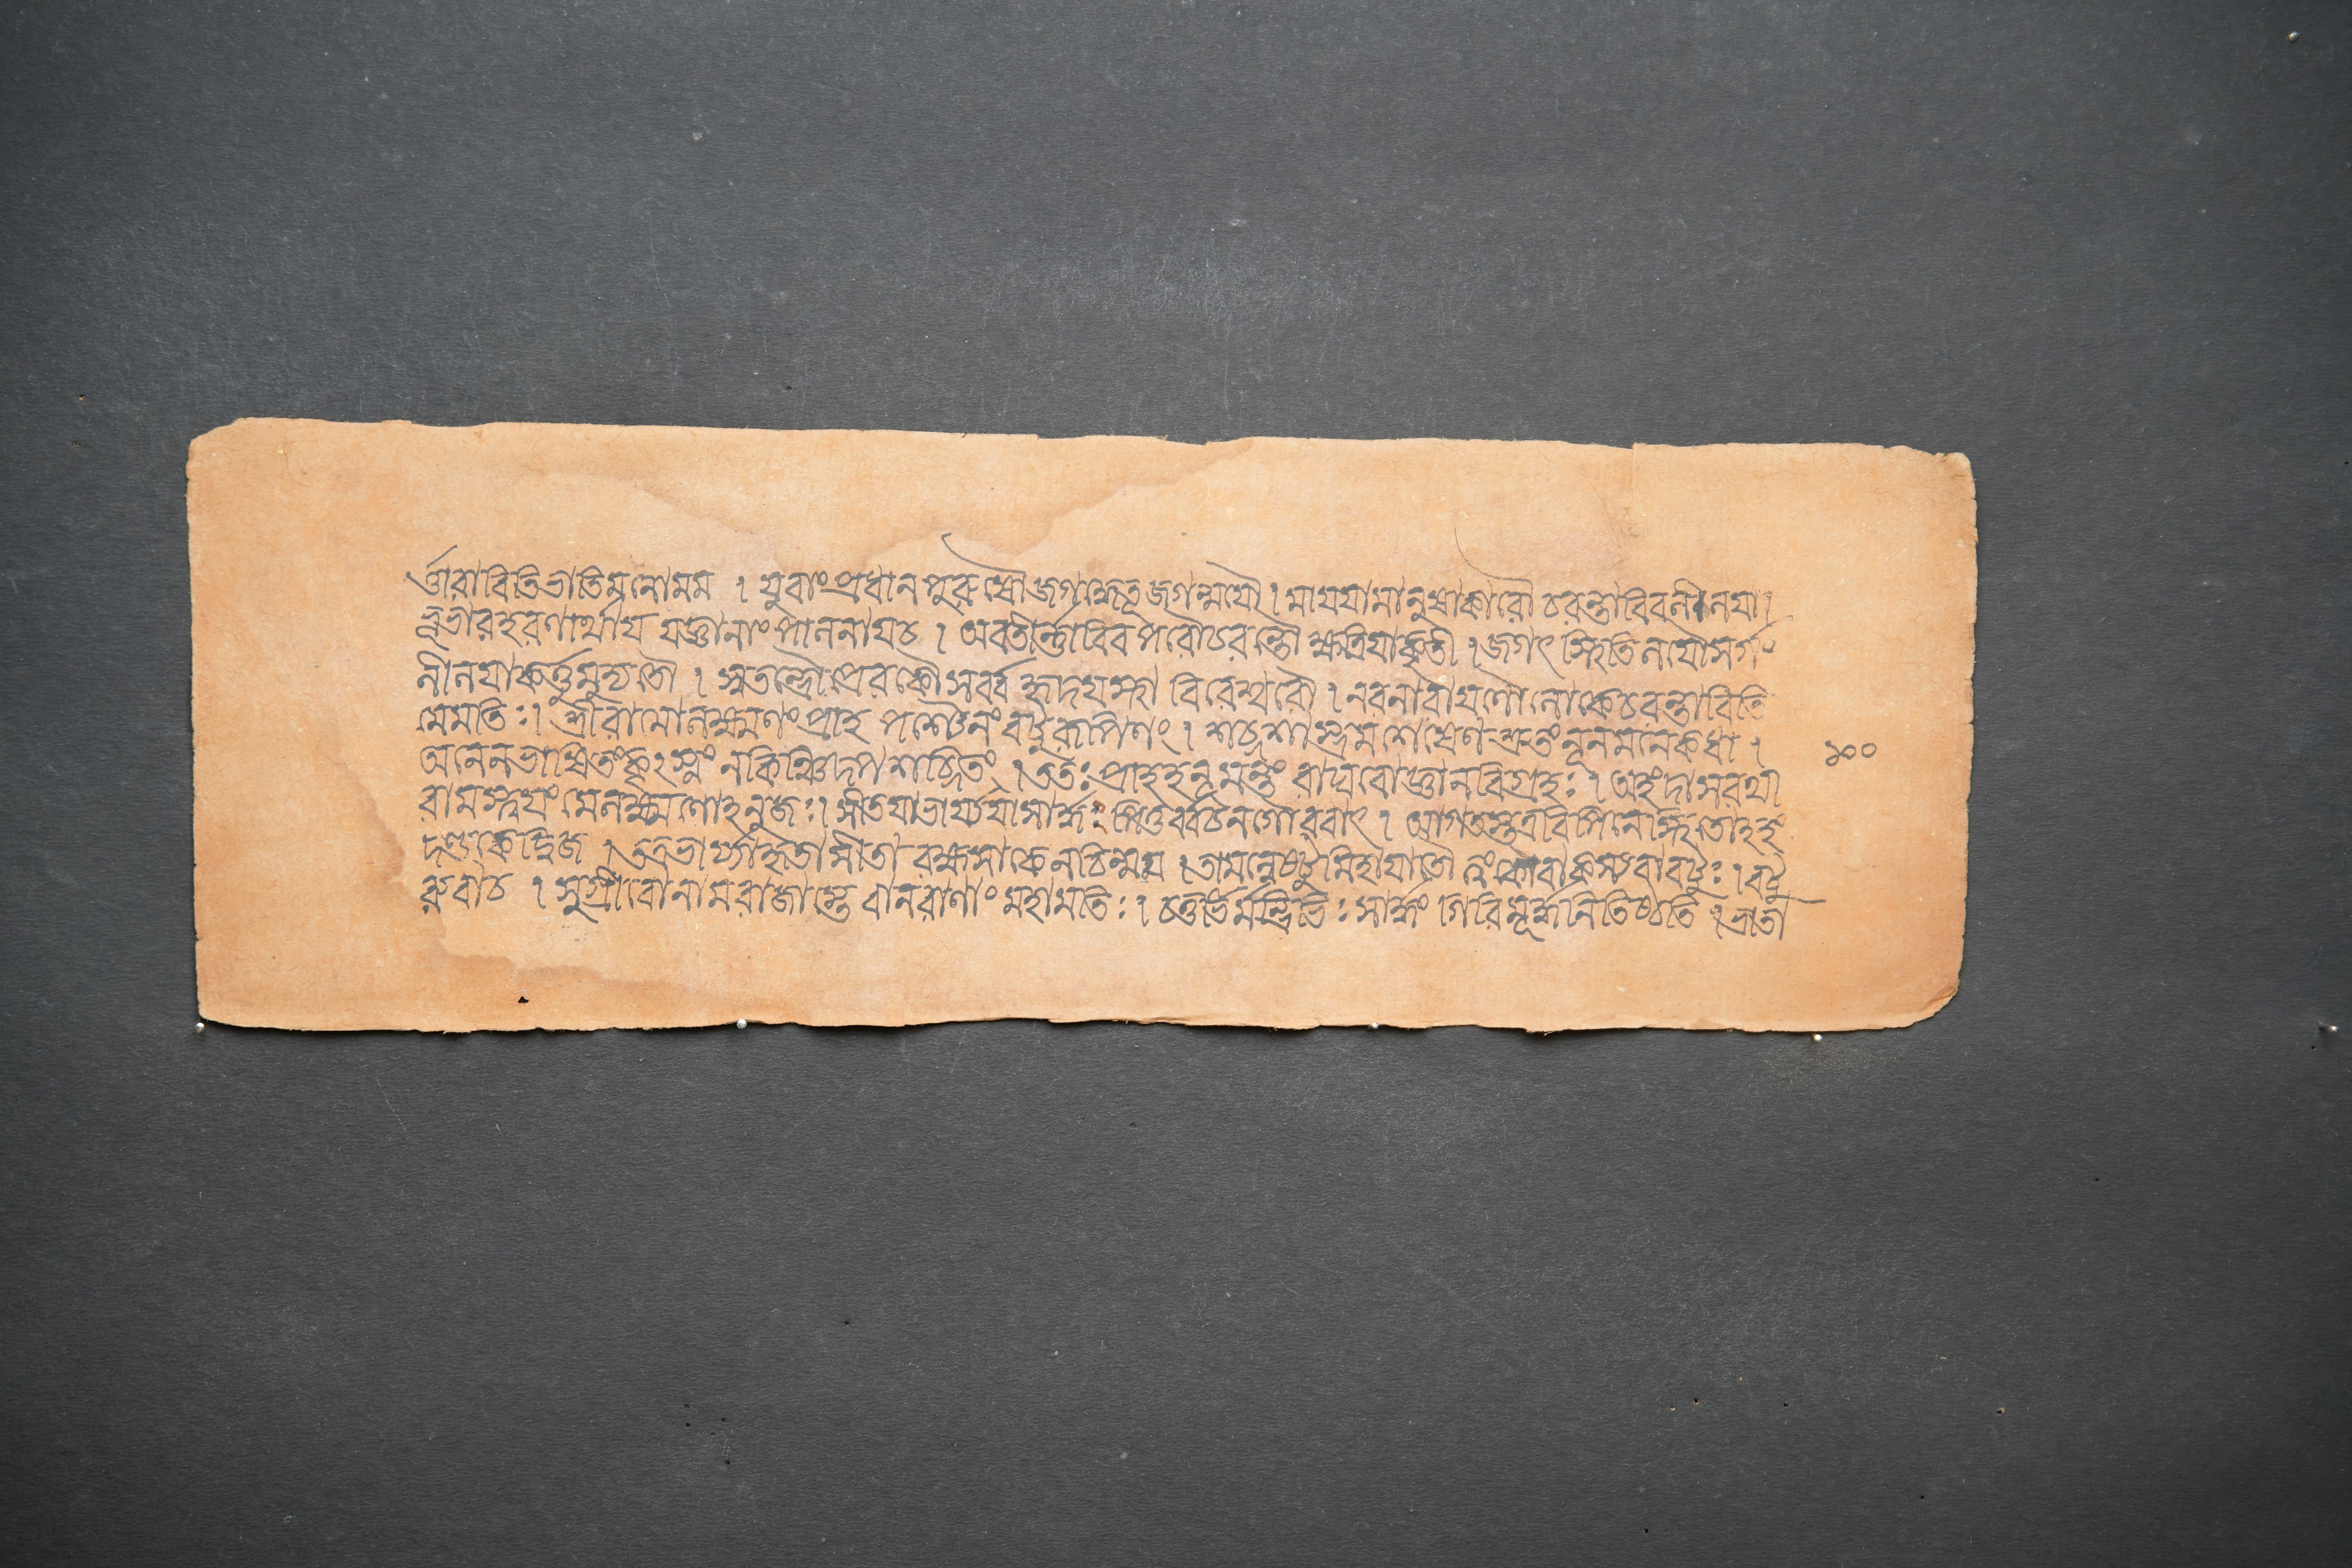 র্ত্তারাবিতিভাতিমনোমম । যুবাংপ্রধানপুরুষৌজগদ্ধেতূজগন্ময়ৌ । মায়য়ামানুষাকারৌ চরন্তাবিবলীলয়া ।
ভূভারহরণার্থায় ভক্তানাং পালনায়চ । অবতীর্ন্নাবিব পরৌচরন্তৌ ক্ষত্রিয়াকৃতী । জগৎ স্থিতিলয়ৌসর্গং
লীলয়াকর্ত্তুমুদ্যতৌ । স্বতন্ত্রৌপ্রেরকৌসর্ব্ব হৃদয়স্থা বিহেশ্বরৌ । নরনারায়ণৌলোকেচরন্তাবিতি
মেমতিঃ । শ্রীরামোলক্ষ্মণং প্রাহ পশ্যৈনং বটুরূপিণং । শব্দশাস্ত্রমশেষেণ শ্রুতং নূনমনেকধা ।
অনেনভাষিতংকৃৎস্নং নকিঞ্চিদপশব্দিতং । ততঃ প্রাহহনূমন্তং রাঘবোজ্ঞানবিগ্রহঃ । অহংদাসরথী
রামস্ত্বয়ং মেলক্ষ্মণোহনুজঃ । সীতয়াভার্য্যয়াসার্দ্ধং পিতুর্ব্বচনগৌরবাৎ । আগতস্তত্রবিপিনেস্থিতোহহং
দণ্ডকেদ্বিজ । তত্রভার্য্যাহৃতাসীতা রক্ষসাকেনচিন্মম । তামন্বেষ্টুমিহায়াতৌ ত্বংকোবাকস্যবাবটুঃ । বটু
রুবাচ । সুগ্রীবোনামরাজাস্তে বানরাণাং মহামতিঃ । চতুর্ভির্মন্ত্রিভিঃ সার্দ্ধং গিরিমূর্দ্ধনিতিষ্ঠতি । ভ্রাতা
১০০